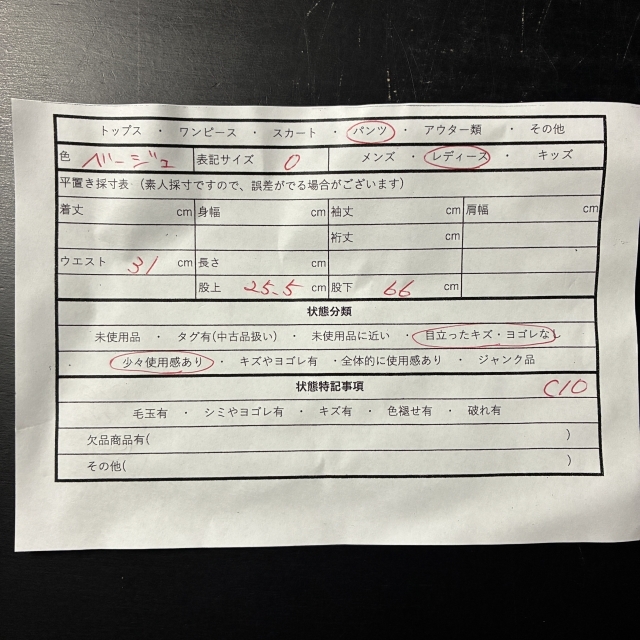 トップス ・ ワンピース ・ スカート ・ パンツ ・ アウター類 ・ その他
色 ベージュ 表記サイズ 0 メンズ ・ レディース ・ キッズ
平置き採寸表 （素人採寸ですので、誤差がでる場合がございます）
着丈 cm 身幅 cm 袖丈 cm 肩幅 cm
裄丈 cm
ウエスト 31 cm 長さ cm
股上 25.5 cm 股下 66 cm
状態分類
未使用品 ・ タグ有(中古品扱い) ・ 未使用品に近い ・ 目立ったキズ・ヨゴレなし
・ 少々使用感あり ・ キズやヨゴレ有 ・全体的に使用感あり ・ ジャンク品
状態特記事項 C10
毛玉有 ・ シミやヨゴレ有 ・ キズ有 ・ 色褪せ有 ・ 破れ有
欠品商品有( )
その他( )